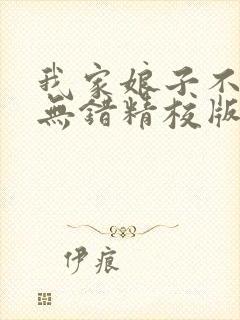 我家娘子不
無錯精校版
伊痕